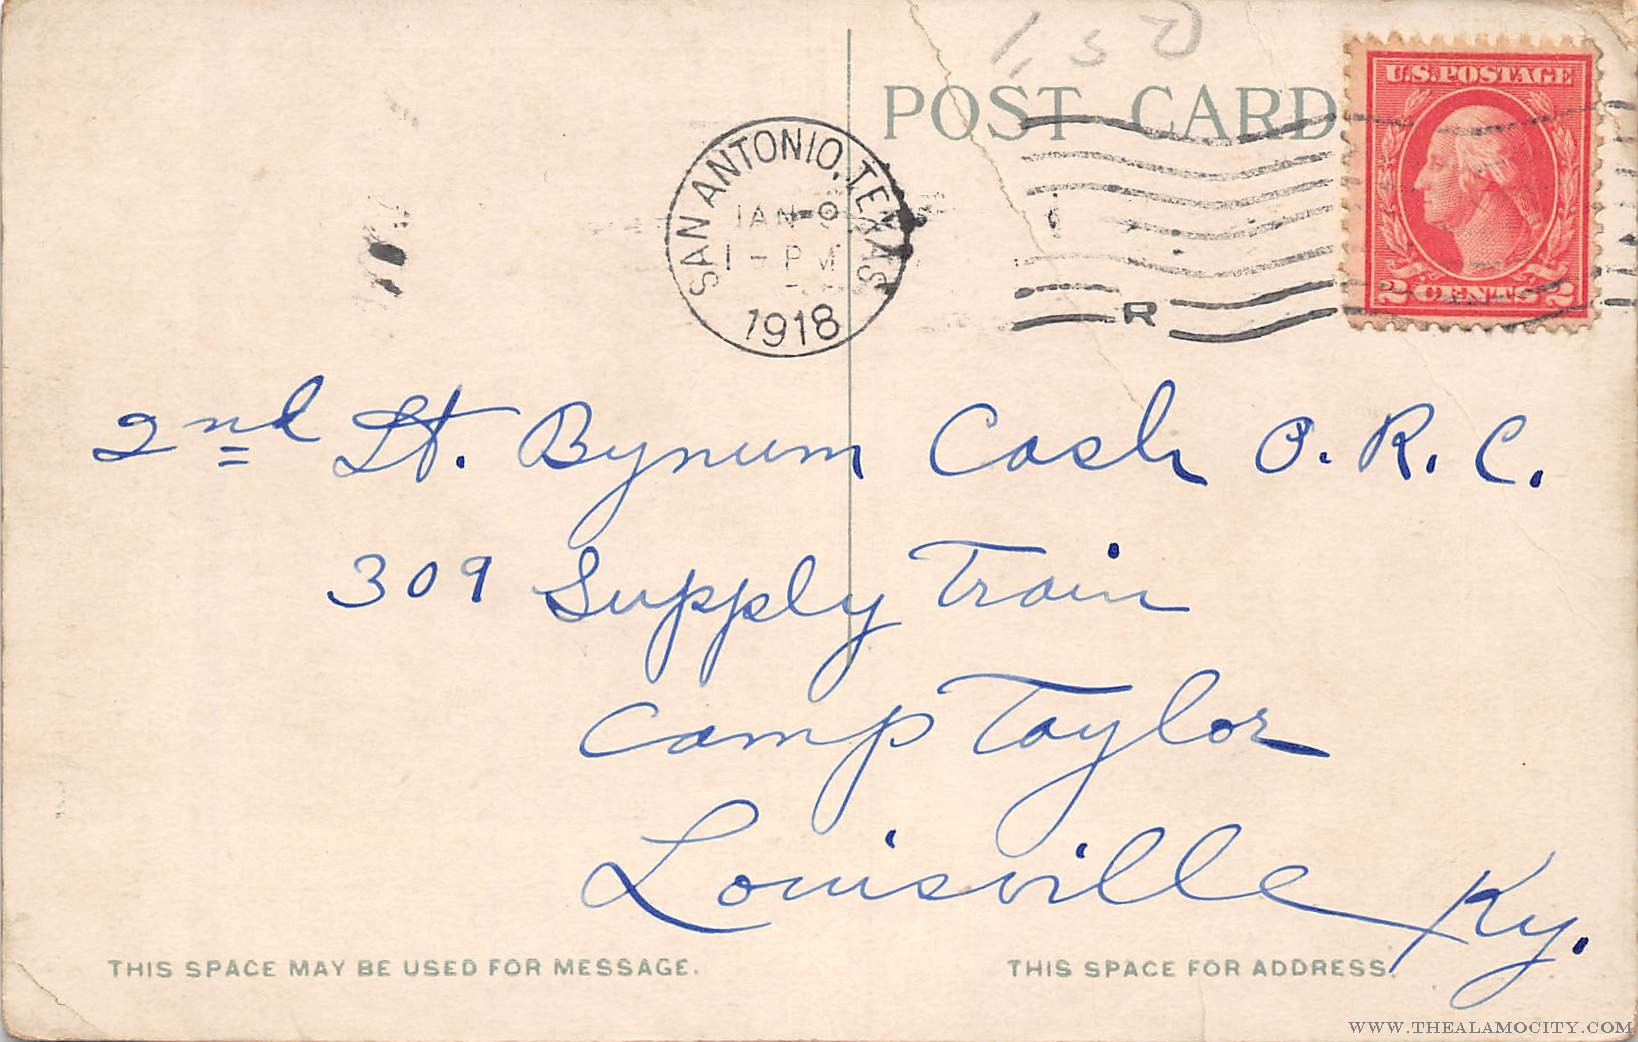 1,50
POST CARD
U.S. POSTAGE
2 CENTS 2
SAN ANTONIO, TEXAS
JAN
1 - PM
1918
R
2nd Lt. Bynum Cash O. R. C.
309 Supply Train
Camp Taylor
Louisville Ky.
THIS SPACE MAY BE USED FOR MESSAGE.
THIS SPACE FOR ADDRESS.
WWW.THEALAMOCITY.COM